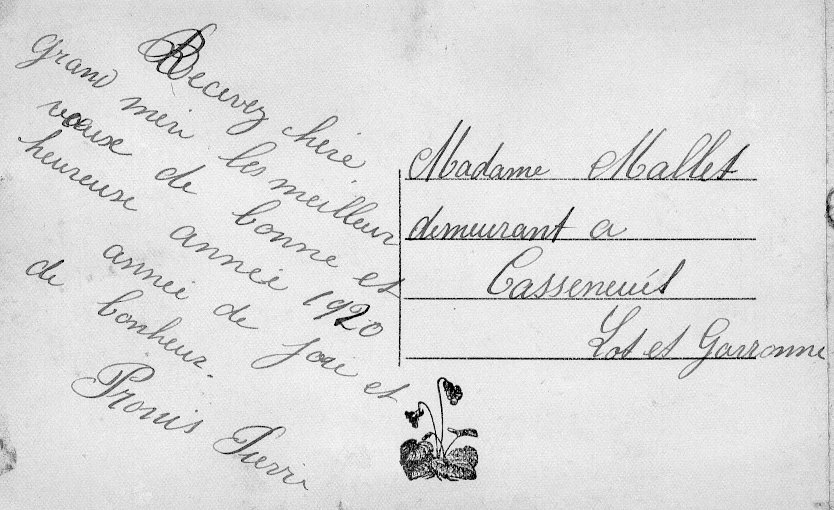 Recevez chère
grand mèri les meilleur
voeuxe de bonne et
heureuse année 1920
année de joie et
de bonheur.
Prouis Pierri
Madame Mallet
demeurant a
Casseneuil
Lot et Garronne